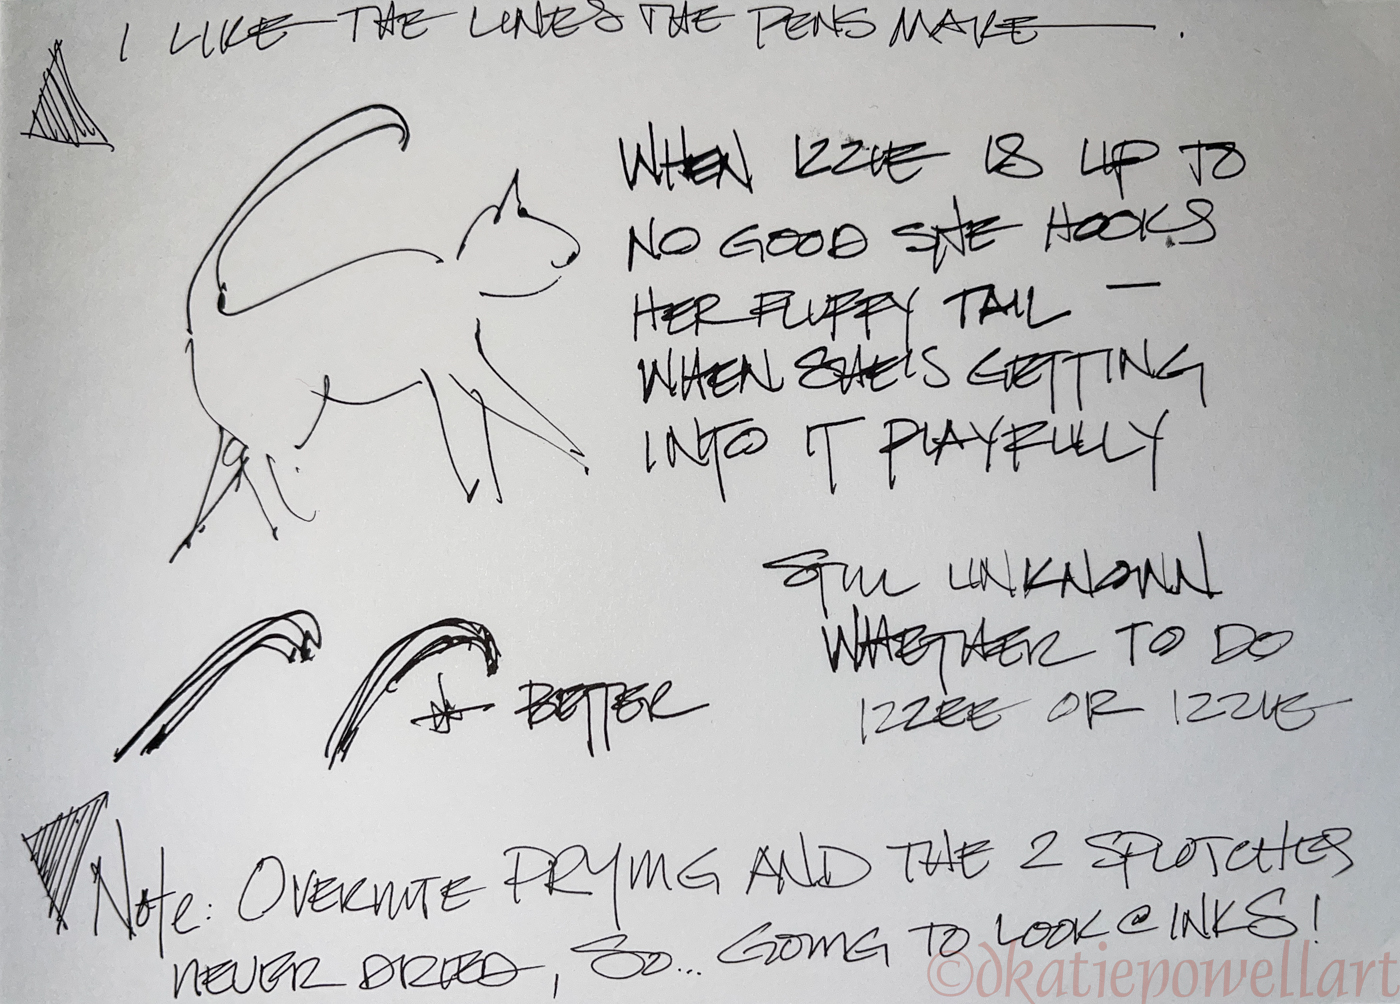 I LIKE THE LINES THE PENS MAKE.
WHEN IZZIE IS UP TO
NO GOOD SHE HOOKS
HER FLUFFY TAIL —
WHEN SHE'S GETTING
INTO IT PLAYFULLY
STILL UNKNOWN
WHETHER TO DO
IZZEE OR IZZIE
BETTER
Note: OVERNITE DRYING AND THE 2 SPLOTCHES
NEVER DRIED, SO... GOING TO LOOK @ INKS!
©dkatiepowellart